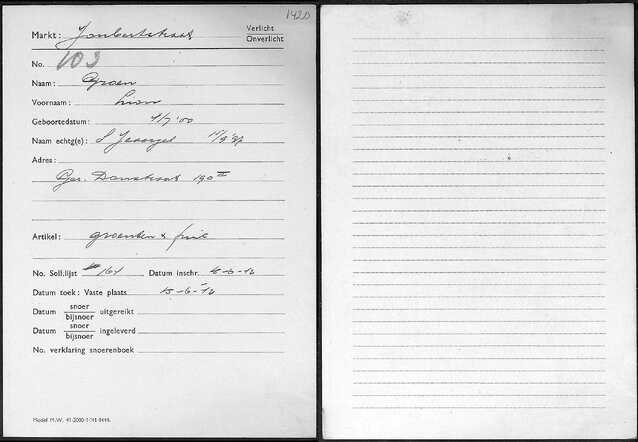 1420
Markt: Joubertstraat Verlicht
Onverlicht
No. 103
Naam: Groen
Voornaam: Levie
Geboortedatum: 4/7 '00
Naam echtg(e): S
Adres:
Ger. Doustraat 190 III
Artikel: groenten & fruit
No. Soll.lijst 164 Datum inschr.
Datum toek: Vaste plaats
Datum snoer/bijsnoer uitgereikt
Datum snoer/bijsnoer ingeleverd
No. verklaring snoerenboek
Model M.W.